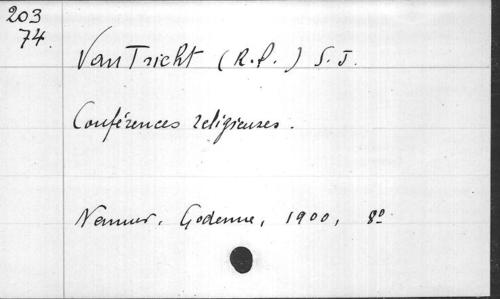 203
74.
Van Tricht (R.P.) S.J.
Conférences religieuses.
Namur. Godenne, 1900, 8º